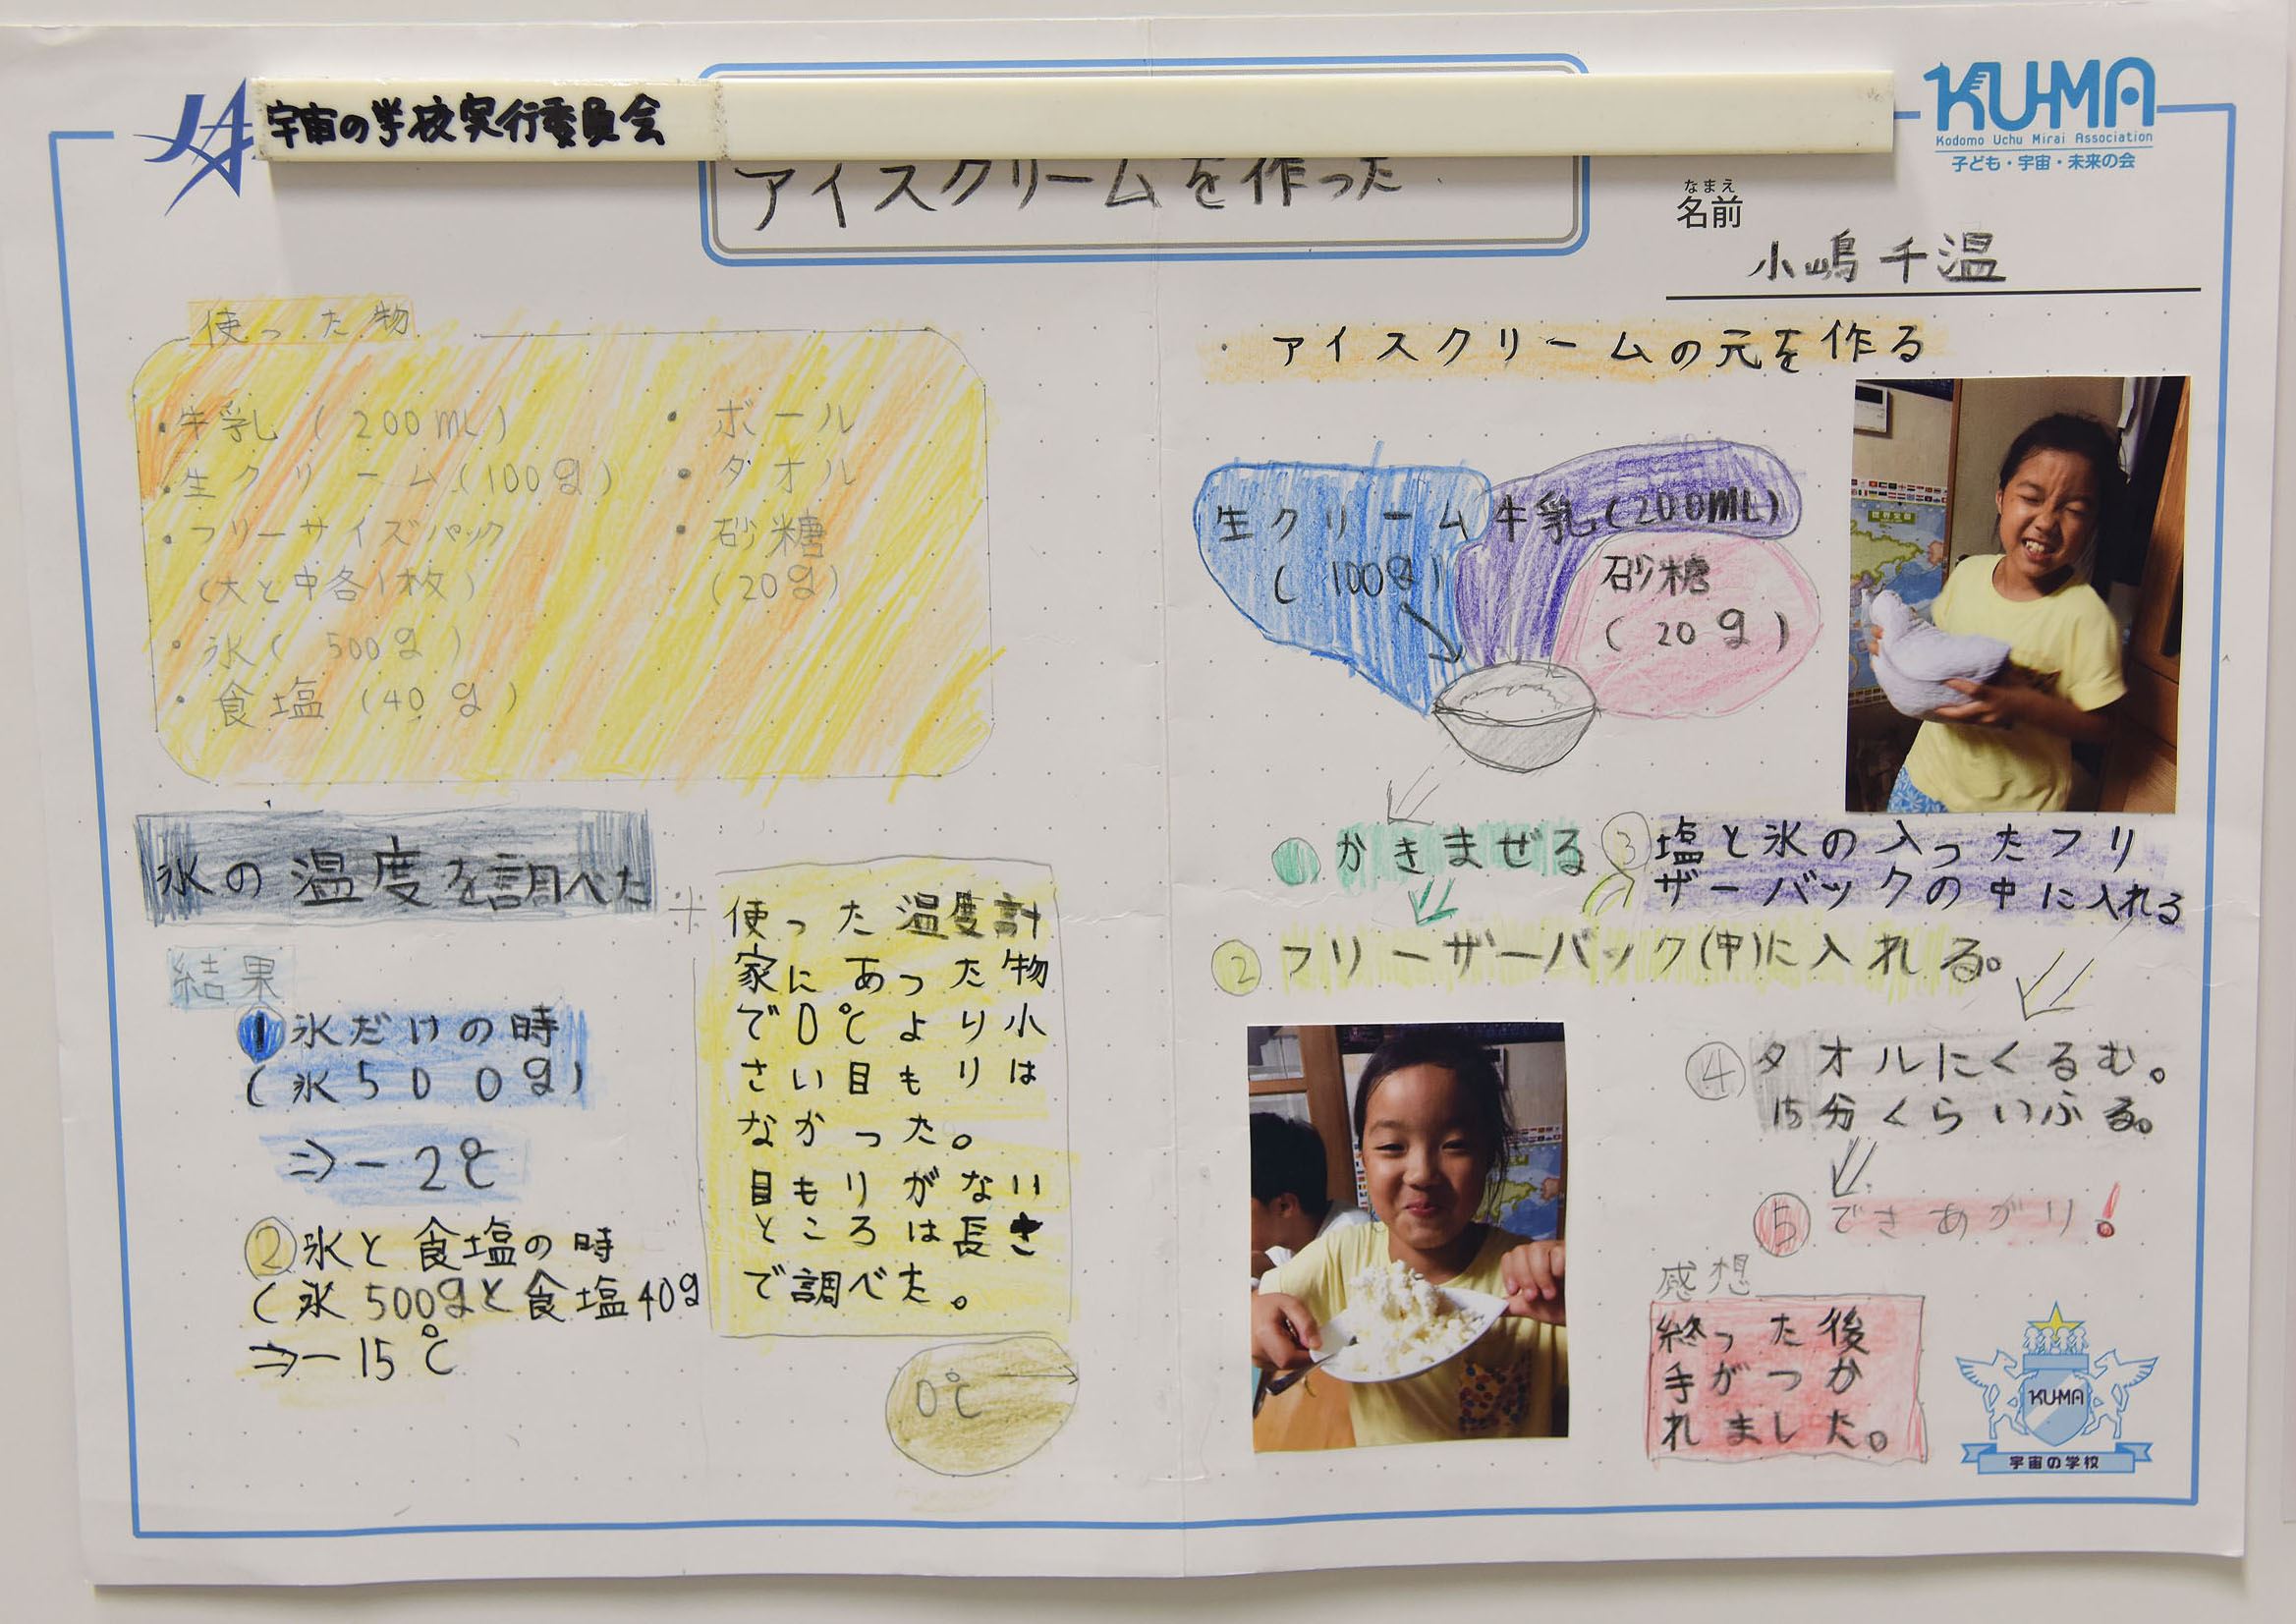 宇宙の学校実行委員会
KUMA
Kodomo Uchu Mirai Association
子ども・宇宙・未来の会
アイスクリームを作った
なまえ
名前
小嶋千温
使った物
・牛乳(200mL)
・生クリーム(100g)
・フリーサイズパック
(大と中各1枚)
・氷(500g)
・食塩(40g)
・ボール
・タオル
・砂糖
(20g)
氷の温度を調べた
結果
①氷だけの時
(氷500g)
⇒-2℃
②氷と食塩の時
(氷500gと食塩40g
⇒-15℃
※
使った温度計
家にあった物
で0℃より小
さい目もりは
なかった。
目もりがない
ところは長さ
で調べた。
0℃
・アイスクリームの元を作る
生クリーム
(100g)
牛乳(200mL)
砂糖
(20g)
かきまぜる
②フリーザーバック(中)に入れる。
③塩と氷の入ったフリ
ザーバックの中に入れる
④タオルにくるむ。
15分くらいふる。
⑤できあがり!
感想
終った後
手がつか
れました。
KUMA
宇宙の学校